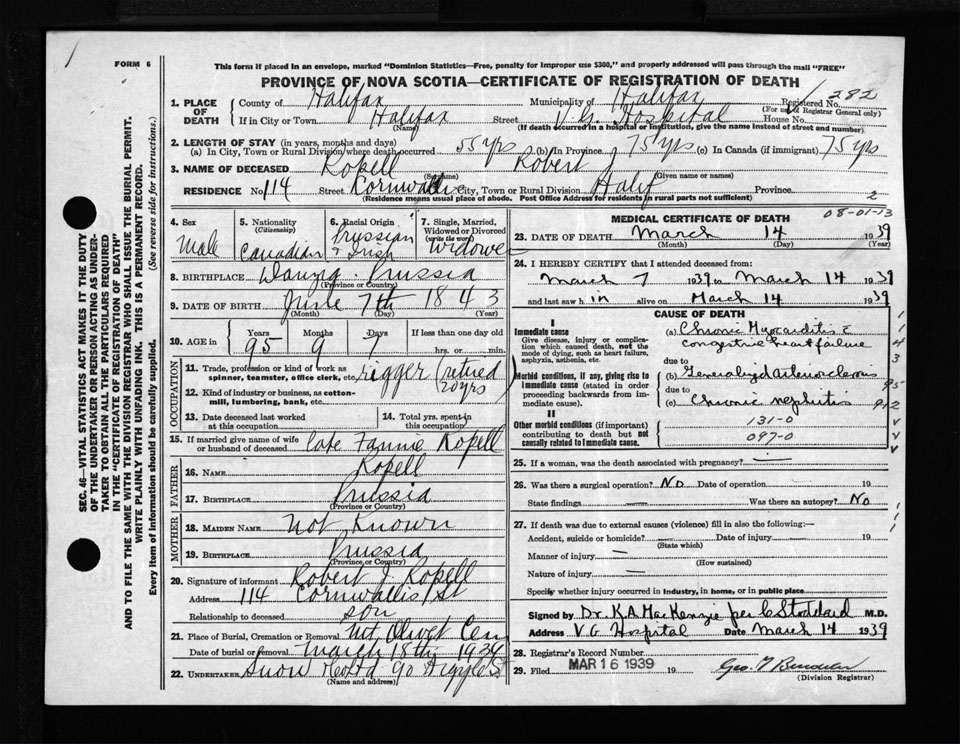 FORM 6
This form if placed in an envelope, marked "Dominion Statistics—Free, penalty for improper use $300," and properly addressed will pass through the mail "FREE"
PROVINCE OF NOVA SCOTIA—CERTIFICATE OF REGISTRATION OF DEATH
SEC. 46—VITAL STATISTICS ACT MAKES IT THE DUTY
OF THE UNDERTAKER OR PERSON ACTING AS UNDER-
TAKER TO OBTAIN ALL THE PARTICULARS REQUIRED
IN THE "CERTIFICATE OF REGISTRATION OF DEATH"
AND TO FILE THE SAME WITH THE DIVISION REGISTRAR WHO SHALL ISSUE THE BURIAL PERMIT.
WRITE PLAINLY WITH UNFADING INK. THIS IS A PERMANENT RECORD.
Every item of information should be carefully supplied. (See reverse side for instructions.)
1. PLACE OF DEATH County of Halifax Municipality of Halifax Registered No. 282
(For use of Registrar General only)
If in City or Town Halifax Street V.G. Hospital House No.
(Name) (If death occurred in a hospital or institution, give the name instead of street and number)
2. LENGTH OF STAY (in years, months and days)
(a) In City, Town or Rural Division where death occurred 55 yrs (b) In Province 75 yrs (c) In Canada (if immigrant) 75 yrs
3. NAME OF DECEASED Kopell Robert J
(Surname) (Given name or names)
RESIDENCE No. 114 Street Cornwallis City, Town or Rural Division Halif Province 2
(Residence means usual place of abode. Post Office Address for residents in rural parts not sufficient)
4. Sex Male
5. Nationality (Citizenship) Canadian
6. Racial Origin Prussian & Irish
7. Single, Married, Widowed or Divorced (write the word) Widower
8. BIRTHPLACE Danzig Prussia
(Province or Country)
9. DATE OF BIRTH June 7th 1843
(Month) (Day) (Year)
10. AGE in Years Months Days If less than one day old
95 9 7 hrs. or min.
OCCUPATION
11. Trade, profession or kind of work as spinner, teamster, office clerk, etc. rigger (retired 20 yrs)
12. Kind of industry or business, as cotton-mill, lumbering, bank, etc.
13. Date deceased last worked at this occupation
14. Total yrs. spent in this occupation
15. If married give name of wife or husband of deceased late Fannie Kopell
FATHER
16. Name Kopell
17. Birthplace Prussia
(Province or Country)
MOTHER
18. Maiden Name Not Known
19. Birthplace Prussia
(Province or Country)
20. Signature of informant Robert J Kopell
Address 114 Cornwallis St
Relationship to deceased son
21. Place of Burial, Cremation or Removal Mt. Olivet Cem
Date of burial or removal March 18th 1939
22. UNDERTAKER Snow & Co Ltd 90 Argyle St
(Name and address)
MEDICAL CERTIFICATE OF DEATH 08-01-13
23. DATE OF DEATH March 14 1939
(Month) (Day) (Year)
24. I HEREBY CERTIFY that I attended deceased from:
March 7 1939 to March 14 1939
and last saw h im alive on March 14 1939
CAUSE OF DEATH
I
Immediate cause (a) Chronic Myocarditis c
Give disease, injury or complication which caused death, not the mode of dying, such as heart failure, asphyxia, asthenia, etc. congestive heart failure
due to
Morbid conditions, if any, giving rise to immediate cause (stated in order proceeding backwards from immediate cause). (b) Generalized arteriosclerosis
due to
(c) Chronic nephritis
II
Other morbid conditions (if important) contributing to death but not causally related to immediate cause. 131-0
097-0
25. If a woman, was the death associated with pregnancy? —
26. Was there a surgical operation? No Date of operation 19
State findings — Was there an autopsy? No
27. If death was due to external causes (violence) fill in also the following:—
Accident, suicide or homicide? — Date of injury 19
(State which)
Manner of injury —
(How sustained)
Nature of injury —
Specify whether injury occurred in Industry, in home, or in public place
Signed by Dr. K.A. MacKenzie per C Stoddard M.D.
Address V.G Hospital Date March 14 1939
28. Registrar's Record No.
29. Filed MAR 16 1939 19
(Division Registrar)